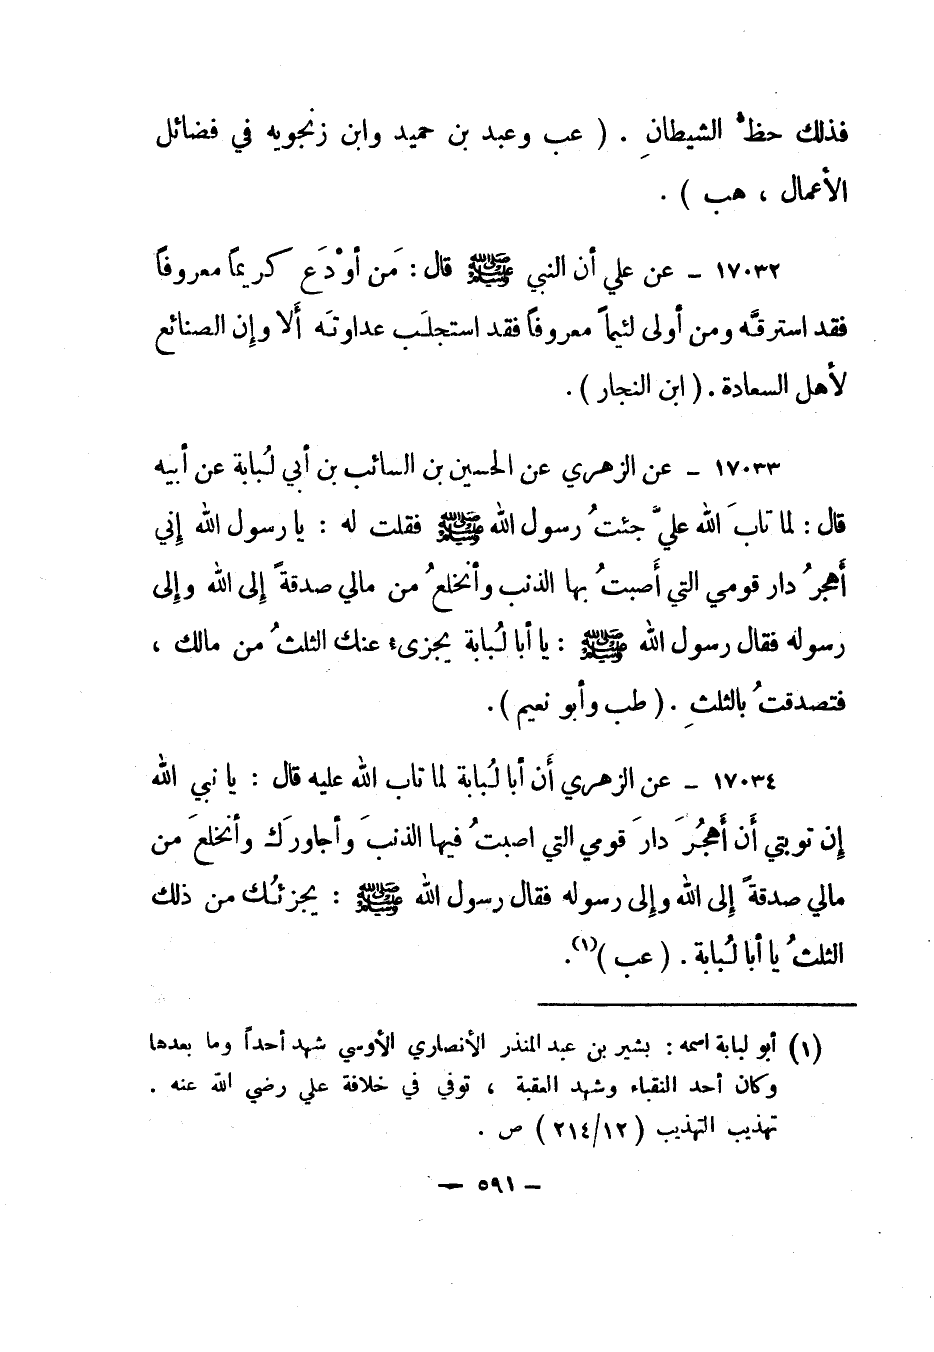 فذلك حظُ الشيطانِ . ( عب وعبد بن حميد وابن زنجويه في فضائل
الأعمال ، هب ) .
١٧٠٣٢ – عن علي أن النبي ﷺ قال : مَن أوْدَع كريماً معروفاً
فقد استرقَّه ومن أولى لئيماً معروفاً فقد استجلَب عداوتَه ألا وإن الصنائع
لأهل السعادة . ( ابن النجار ) .
١٧٠٣٣ – عن الزهري عن الحسين بن السائب بن أبي لُبابة عن أبيه
قال : لما تابَ الله عليَّ جئتُ رسول الله ﷺ فقلت له : يا رسول الله إني
أَهجرُ دار قومي التي أَصبتُ بها الذنب وأنخلعُ من مالي صدقةً إلى الله وإلى
رسوله فقال رسول الله ﷺ : يا أبا لُبابة يجزىء عنك الثلثُ من مالك ،
فتصدقتُ بالثلثِ . ( طب وأبو نعيم ) .
١٧٠٣٤ – عن الزهري أن أبا لُبابة لما تاب الله عليه قال : يا نبي الله
إن توبتي أن أَهجُرَ دارَ قومي التي اصبتُ فيها الذنبَ وأجاورَك وأنخلعَ من
مالي صدقةً إلى الله وإلى رسوله فقال رسول الله ﷺ : يجزئُك من ذلك
الثلثُ يا أبا لُبابة . ( عب )(١).
(١) أبو لبابة اسمه : بشير بن عبد المنذر الأنصاري الأوسي شهد أحداً وما بعدها
وكان أحد النقباء وشهد العقبة ، توفي في خلافة علي رضي الله عنه .
تهذيب التهذيب ( ٢١٤/١٢ ) ص .
– ٥٩١ –